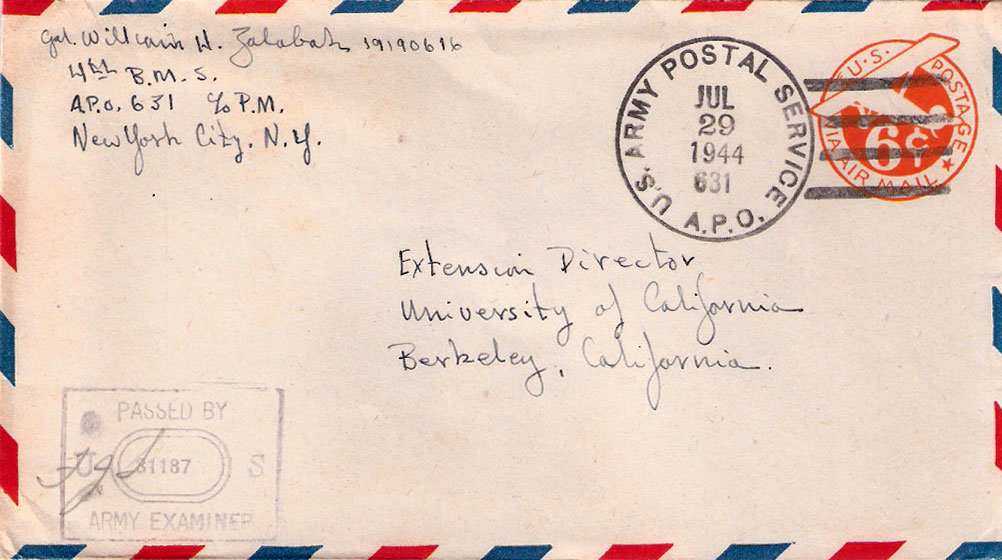 William H. Zalabak 19190616
4th B.M.S.
A.P.O. 631 c/o P.M.
New York City, N.Y.
U.S. ARMY POSTAL SERVICE
JUL
29
1944
631
A.P.O.
U.S. POSTAGE
6¢
VIA AIR MAIL
Extension Director
University of California
Berkeley, California.
PASSED BY
U 31187 S
ARMY EXAMINER